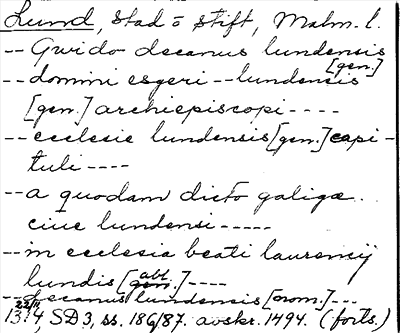 Lund, stad o stift, Malm. l.
-- Gwido decanus lundensis
[gen.]
-- domini esgeri -- lundensis
[gen.] archiepiscopi ----
-- ecclesie lundensis [gen.] capi-
tuli ----
-- a quodam dicto galiga
ciue lundensi -----
-- in ecclesia beati laurencij
abl.
lundis [gen.] ----
-- decanus lundensis [nom.] ---
22/11
1314 SD 3, ss. 186/87. avskr. 1494. (forts.)